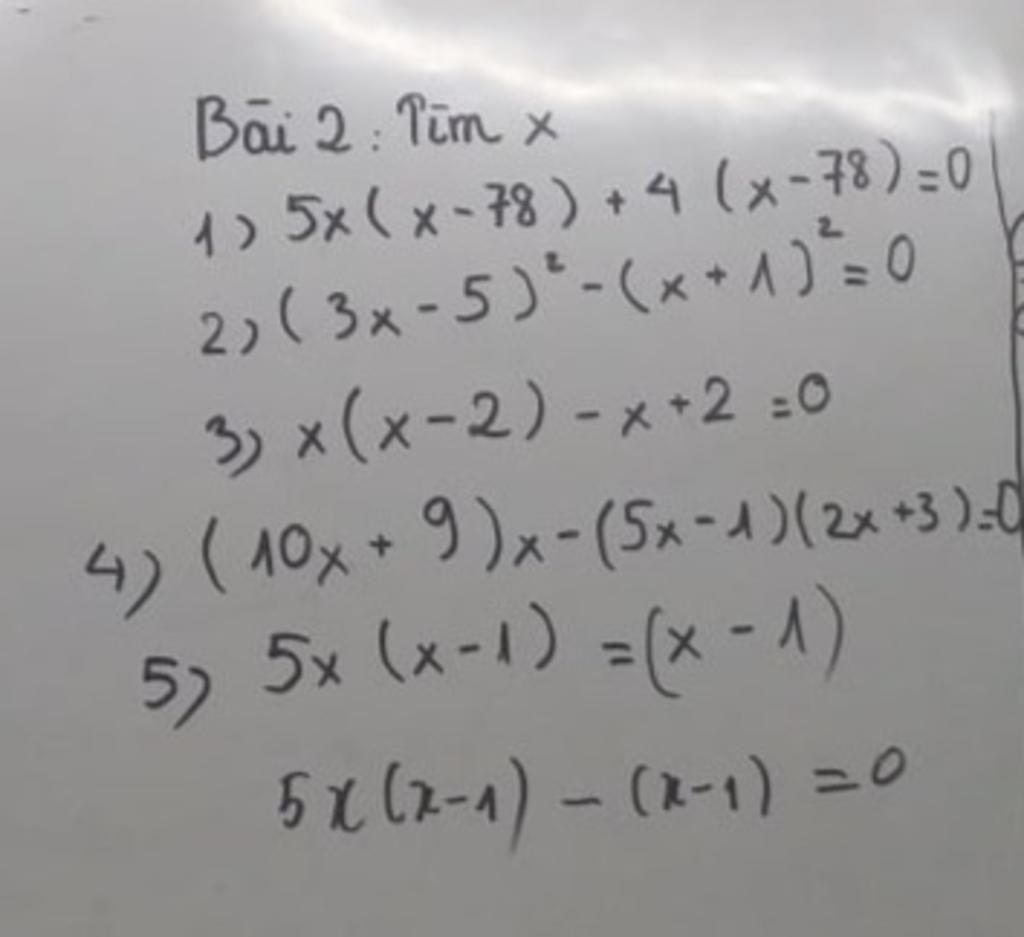 Bài 2: Tìm x
1) 5x(x-78) + 4 (x-78)=0
2) (3x-5)² - (x+1)² = 0
3) x(x-2) - x+2 =0
4) (10x+9)x-(5x-1)(2x+3)=0
5) 5x (x-1) =(x-1)
5x(x-1) - (x-1) =0